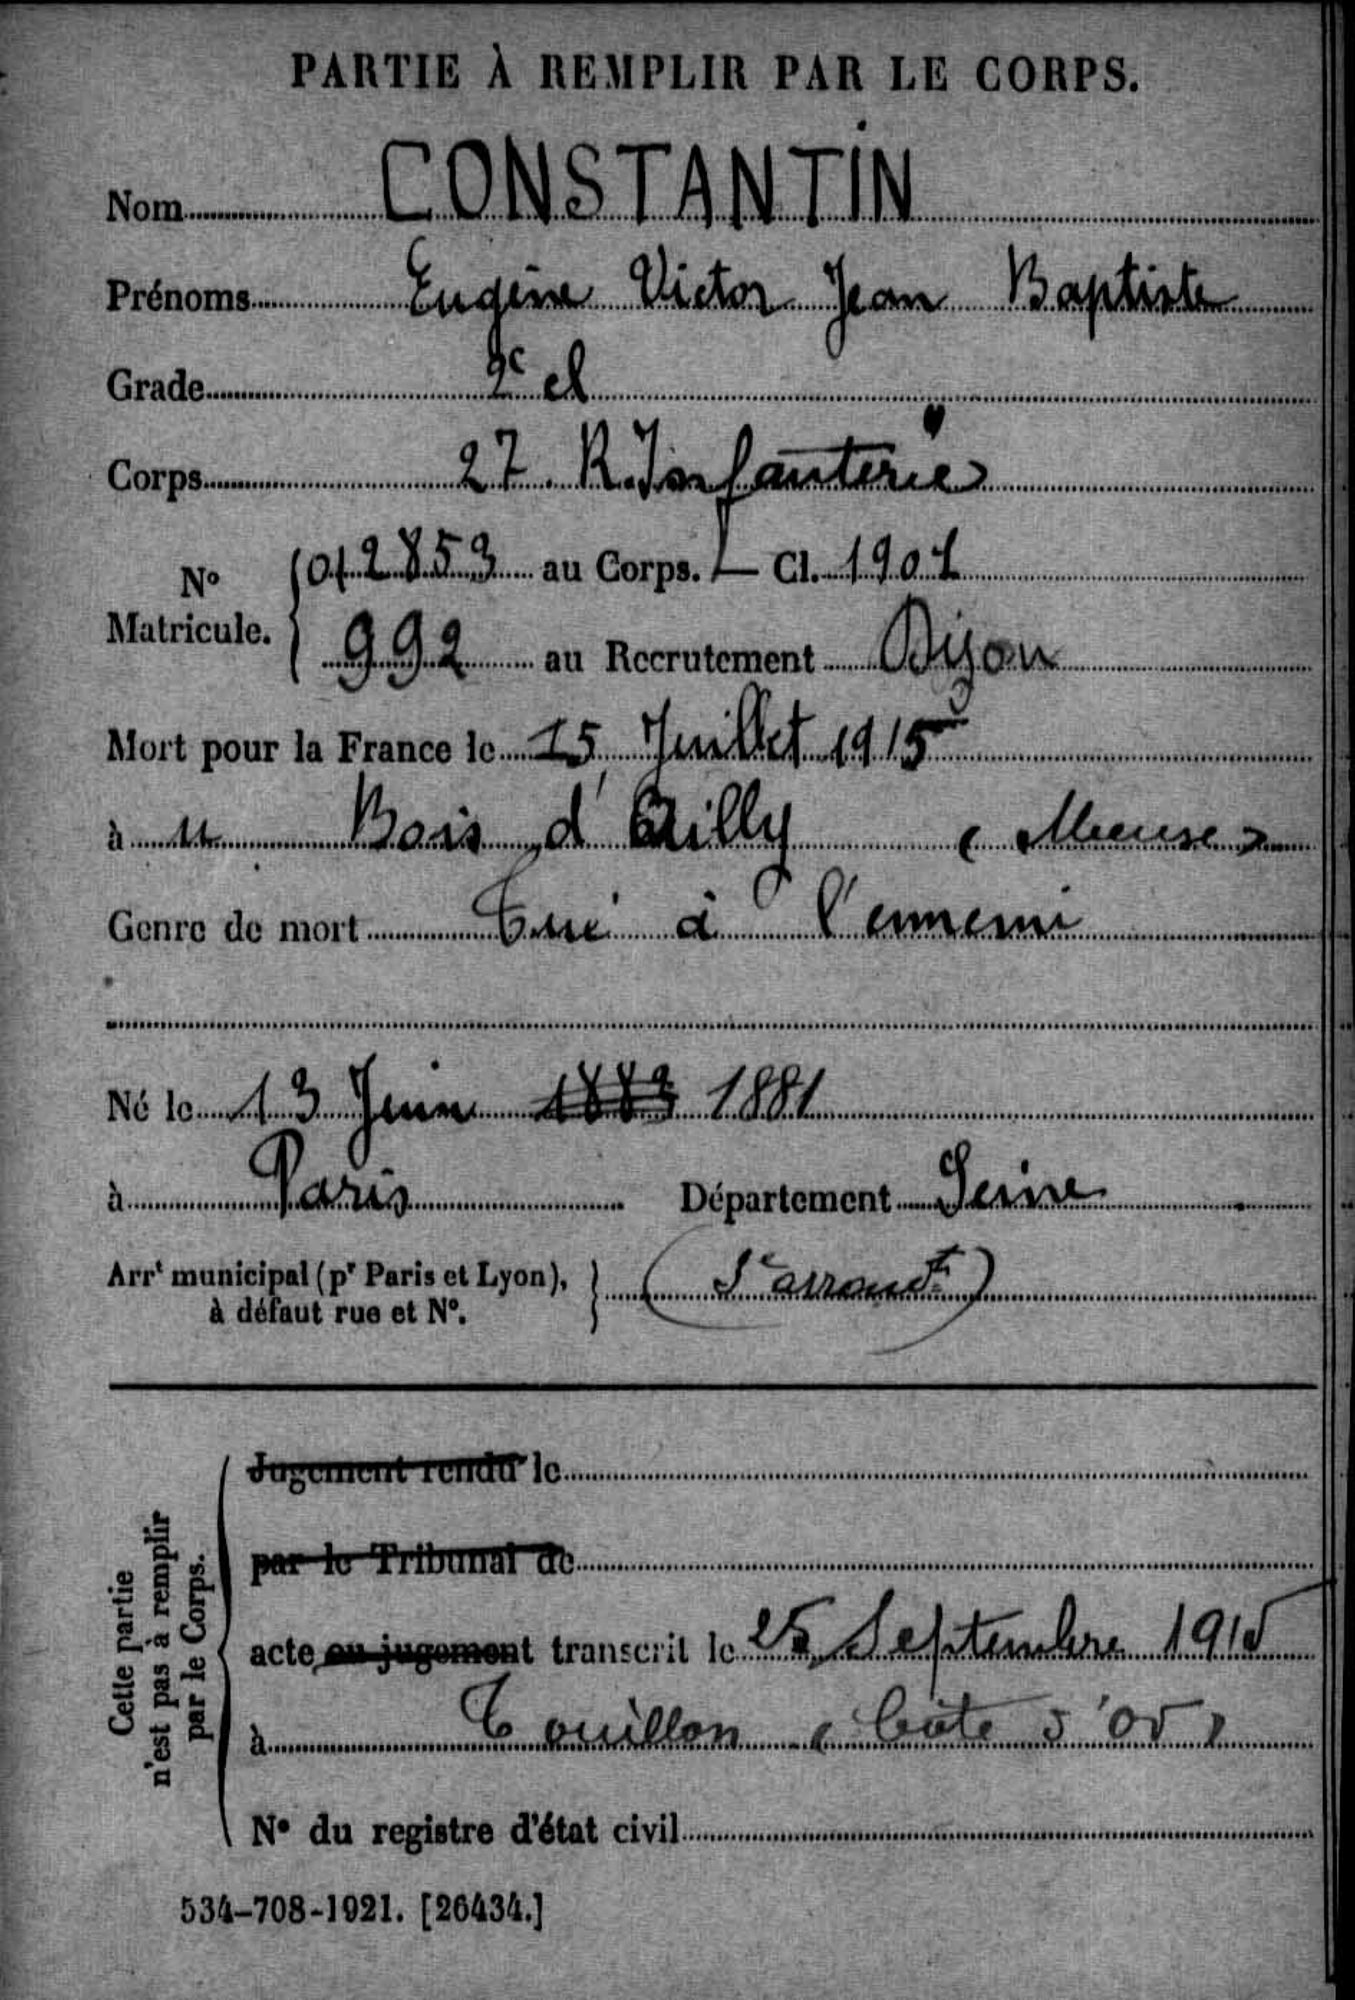 PARTIE À REMPLIR PAR LE CORPS.
Nom CONSTANTIN
Prénoms Eugène Victor Jean Baptiste
Grade 2e cl
Corps 27. R. Infanterie
No Matricule. 012853 au Corps. — Cl. 1901
992 au Recrutement Dijon
Mort pour la France le 15 Juillet 1915
à u Bois d'Ailly (Meuse)
Genre de mort Tué à l'ennemi
Né le 13 Juin 1883 1881
à Paris Département Seine
Arrt municipal (pr Paris et Lyon), à défaut rue et No. arrondt
Cette partie n'est pas à remplir par le Corps.
Jugement rendu le
par le Tribunal de
acte ou jugement transcrit le 25 Septembre 1915
à Touillon (Côte d'Or)
No du registre d'état civil
534-708-1921. [26434.]